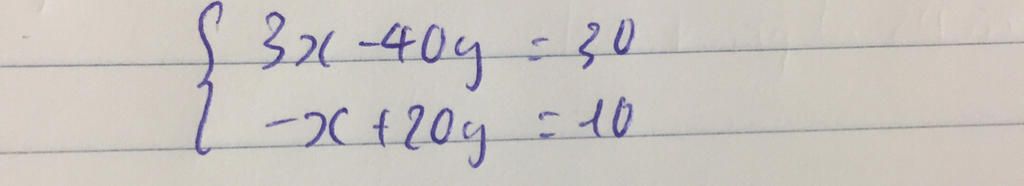 3x - 40y = 30
-x + 20y = 10